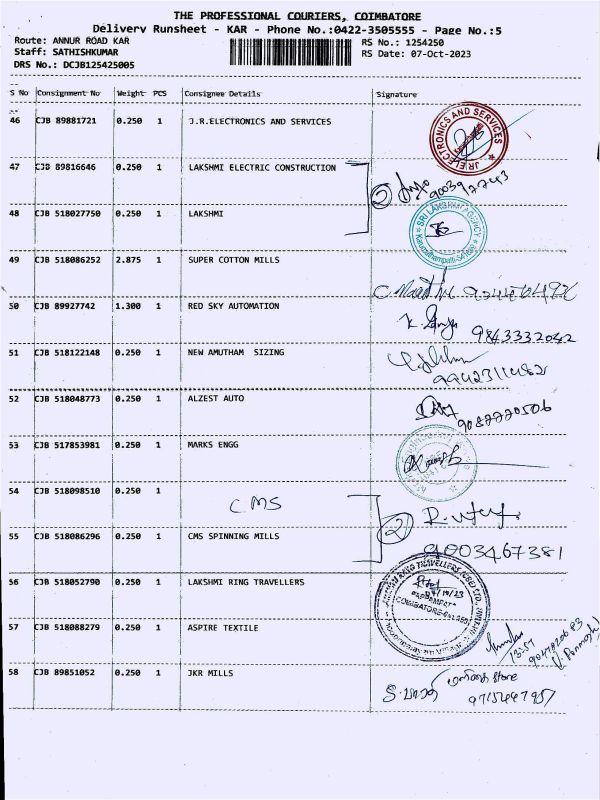 THE PROFESSIONAL COURIERS, COIMBATORE
Delivery Runsheet - KAR - Phone No.:0422-3505555 - Page No.:5
Route: ANNUR ROAD KAR
RS No.: 1254250
Staff: SATHISHKUMAR
RS Date: 07-Oct-2023
DRS No.: DCJB125425005
S No Consignment No Weight PCS Consignee Details Signature
46 CJB 89881721 0.250 1 J.R.ELECTRONICS AND SERVICES
JR ELECTRONICS AND SERVICES
47 CJB 89816646 0.250 1 LAKSHMI ELECTRIC CONSTRUCTION
2
48 CJB 518027750 0.250 1 LAKSHMI
SRI LAKSHMI AGENCY
49 CJB 518086252 2.875 1 SUPER COTTON MILLS
50 CJB 89927742 1.300 1 RED SKY AUTOMATION
9843332042
51 CJB 518122148 0.250 1 NEW AMUTHAM SIZING
52 CJB 518048773 0.250 1 ALZEST AUTO
53 CJB 517853981 0.250 1 MARKS ENGG
54 CJB 518098510 0.250 1 CMS
2
55 CJB 518086296 0.250 1 CMS SPINNING MILLS
9003467381
56 CJB 518052790 0.250 1 LAKSHMI RING TRAVELLERS
57 CJB 518088279 0.250 1 ASPIRE TEXTILE
58 CJB 89851052 0.250 1 JKR MILLS
store